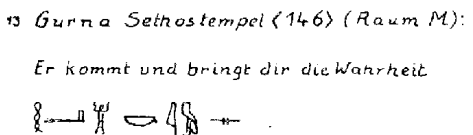 13 Gurna Sethostempel <146> (Raum M):
Er kommt und bringt dir die Wahrheit